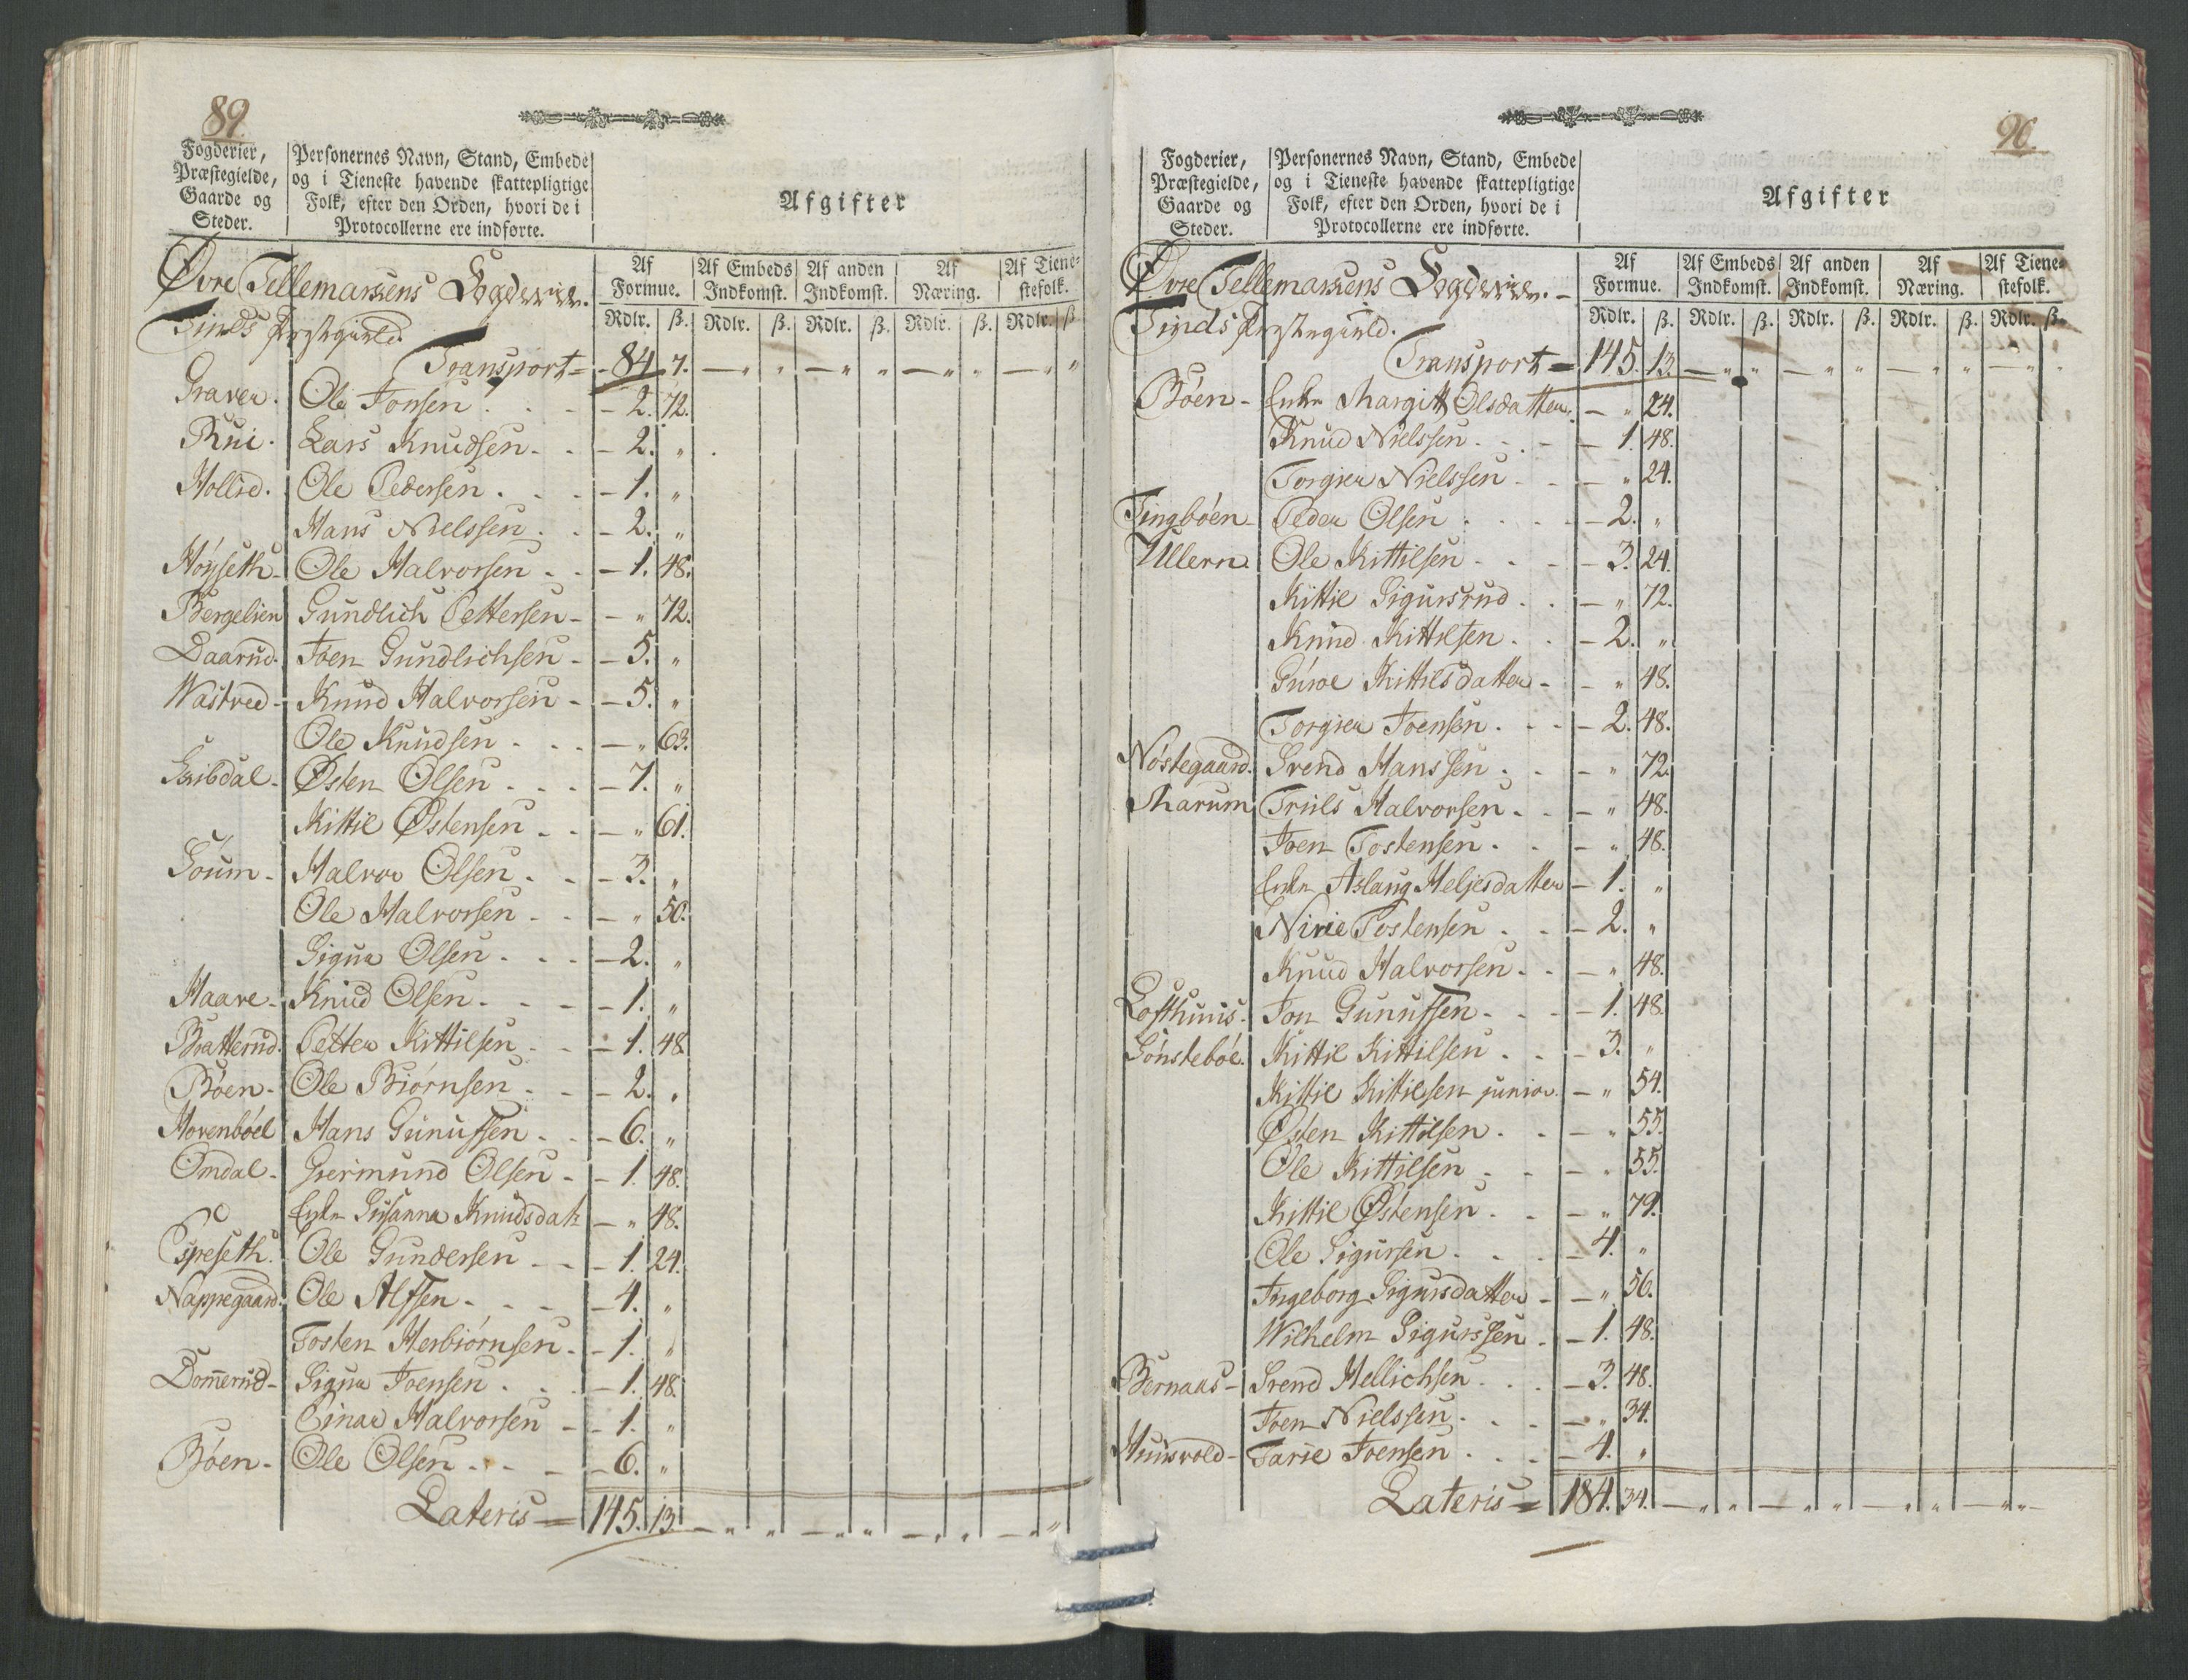 89.
Fogderier, Præstegielde, Gaarde og Steder.
Personernes Navn, Stand, Embede og i Tieneste havende skattepligtige Folk, efter den Orden, hvori de i Protocollerne ere indførte.
Afgifter
Af Formue. Af Embeds Indkomst. Af anden Indkomst. Af Næring. Af Tienestefolk.
Rdlr. ß. Rdlr. ß. Rdlr. ß. Rdlr. ß. Rdlr. ß
Øvre Tellemarkens Fogderie.
Tinds Præstegield.
Transport = - 84. 7. — " " — " " — " " — " "
Graver. Ole Jonsen - 2. 72.
Rui. Lars Knudsen - 2. "
Hollid. Ole Pedersen - 1. "
Hans Nielssen - 2. "
Høyseth - Ole Halvorsen - 1. 48.
Bergelien Gundlich Pettersen - - " 72.
Daarud. Joen Gundlichsen - - 5. "
Wastved - Knud Halvorsen - - 5. "
Ole Knudsen - — " 63.
Gribdal - Østen Olsen - 7. "
Kittil Østensen - — " 61.
Goum - Halvor Olsen - 3. "
Ole Halvorsen - — " 50.
Sigur Olsen - 2. "
Haave - Knud Olsen - 1. "
Bratterud. Petter Kittilsen - 1. 48
Bøen - Ole Biørnsen - 2. "
Hovenbøel Hans Gunufsen - 6. "
Omdal - Giermund Olsen - - 1. 48.
Enke Susanna Knudsdatr — " 48.
Espeseth. Ole Gundersen - 1. 24.
Nappegaard. Ole Alfsen - 4. "
Tosten Herbiørnsen - - 1. "
Dom̄erud - Sigur Joensen - 1. 48.
Einar Halvorsen - - 1. "
Bøen - Ole Olsen - 6. "
Lateris = 145. 13. — " " — " " — " " — " "
90.
Fogderier, Præstegielde, Gaarde og Steder.
Personernes Navn, Stand, Embede og i Tieneste havende skattepligtige Folk, efter den Orden, hvori de i Protocollerne ere indførte.
Afgifter
Af Formue. Af Embeds Indkomst. Af anden Indkomst. Af Næring. Af Tienestefolk.
Rdlr. ß. Rdlr. ß. Rdlr. ß. Rdlr. ß. Rdlr. ß.
Øvre Tellemarkens Fogderie. -
Tinds Præstegield.
Transport = 145. 13. — " " — " " — " " — " "
Bøen - Enke Margitt Olsdatter. — " 24.
Knud Nielssen - 1. 48.
Torgier Nielssen - — " 24.
Tingbøen - Peder Olsen - 2. "
Ullern Ole Kittilsen - 3. 24.
Kittil Sigursrud - — " 72.
Knud Kittilsen - 2. "
Guroe Kittilsdatter - - " 48.
Torgier Joensen - 2. 48.
Nøstegaard. Svend Hanssen - - " 72
Marum Truls Halvorsen - — " 48.
Joen Tostensen - — " 48.
Enke Aslaug Heljesdatter - 1. "
Nirie Tostensen - 2. "
Knud Halvorsen - — " 48.
Lofthuus. Jon Gunufsen - 1. 48.
Gonstebøe. Kittil Kittilsen - 3. "
Kittil Kittilsen junior. — " 54.
Østen Kittilsen - — " 55.
Ole Kittilsen - — " 55.
Kittil Østensen - — " 79.
Ole Sigursen - 4. "
Ingeborg Sigursdatter - — " 56.
Wilhelm Sigurssen - 1. 48.
Bernaas - Svend Hellichsen - 3. 48.
Joen Nielssen - — " 34.
Huusvold - Tarie Joensen - 4. "
Lateris = 184. 34. — " " — " " — " " — " "